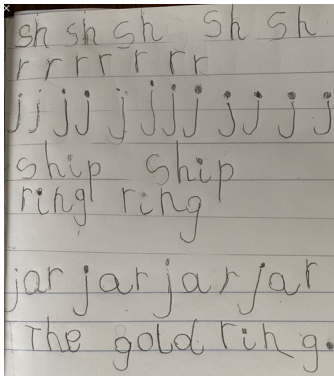 sh sh sh sh sh
r r r r r r r
j j j j j j j j j j j j
ship ship
ring ring
jar jar jar jar
The gold ring.